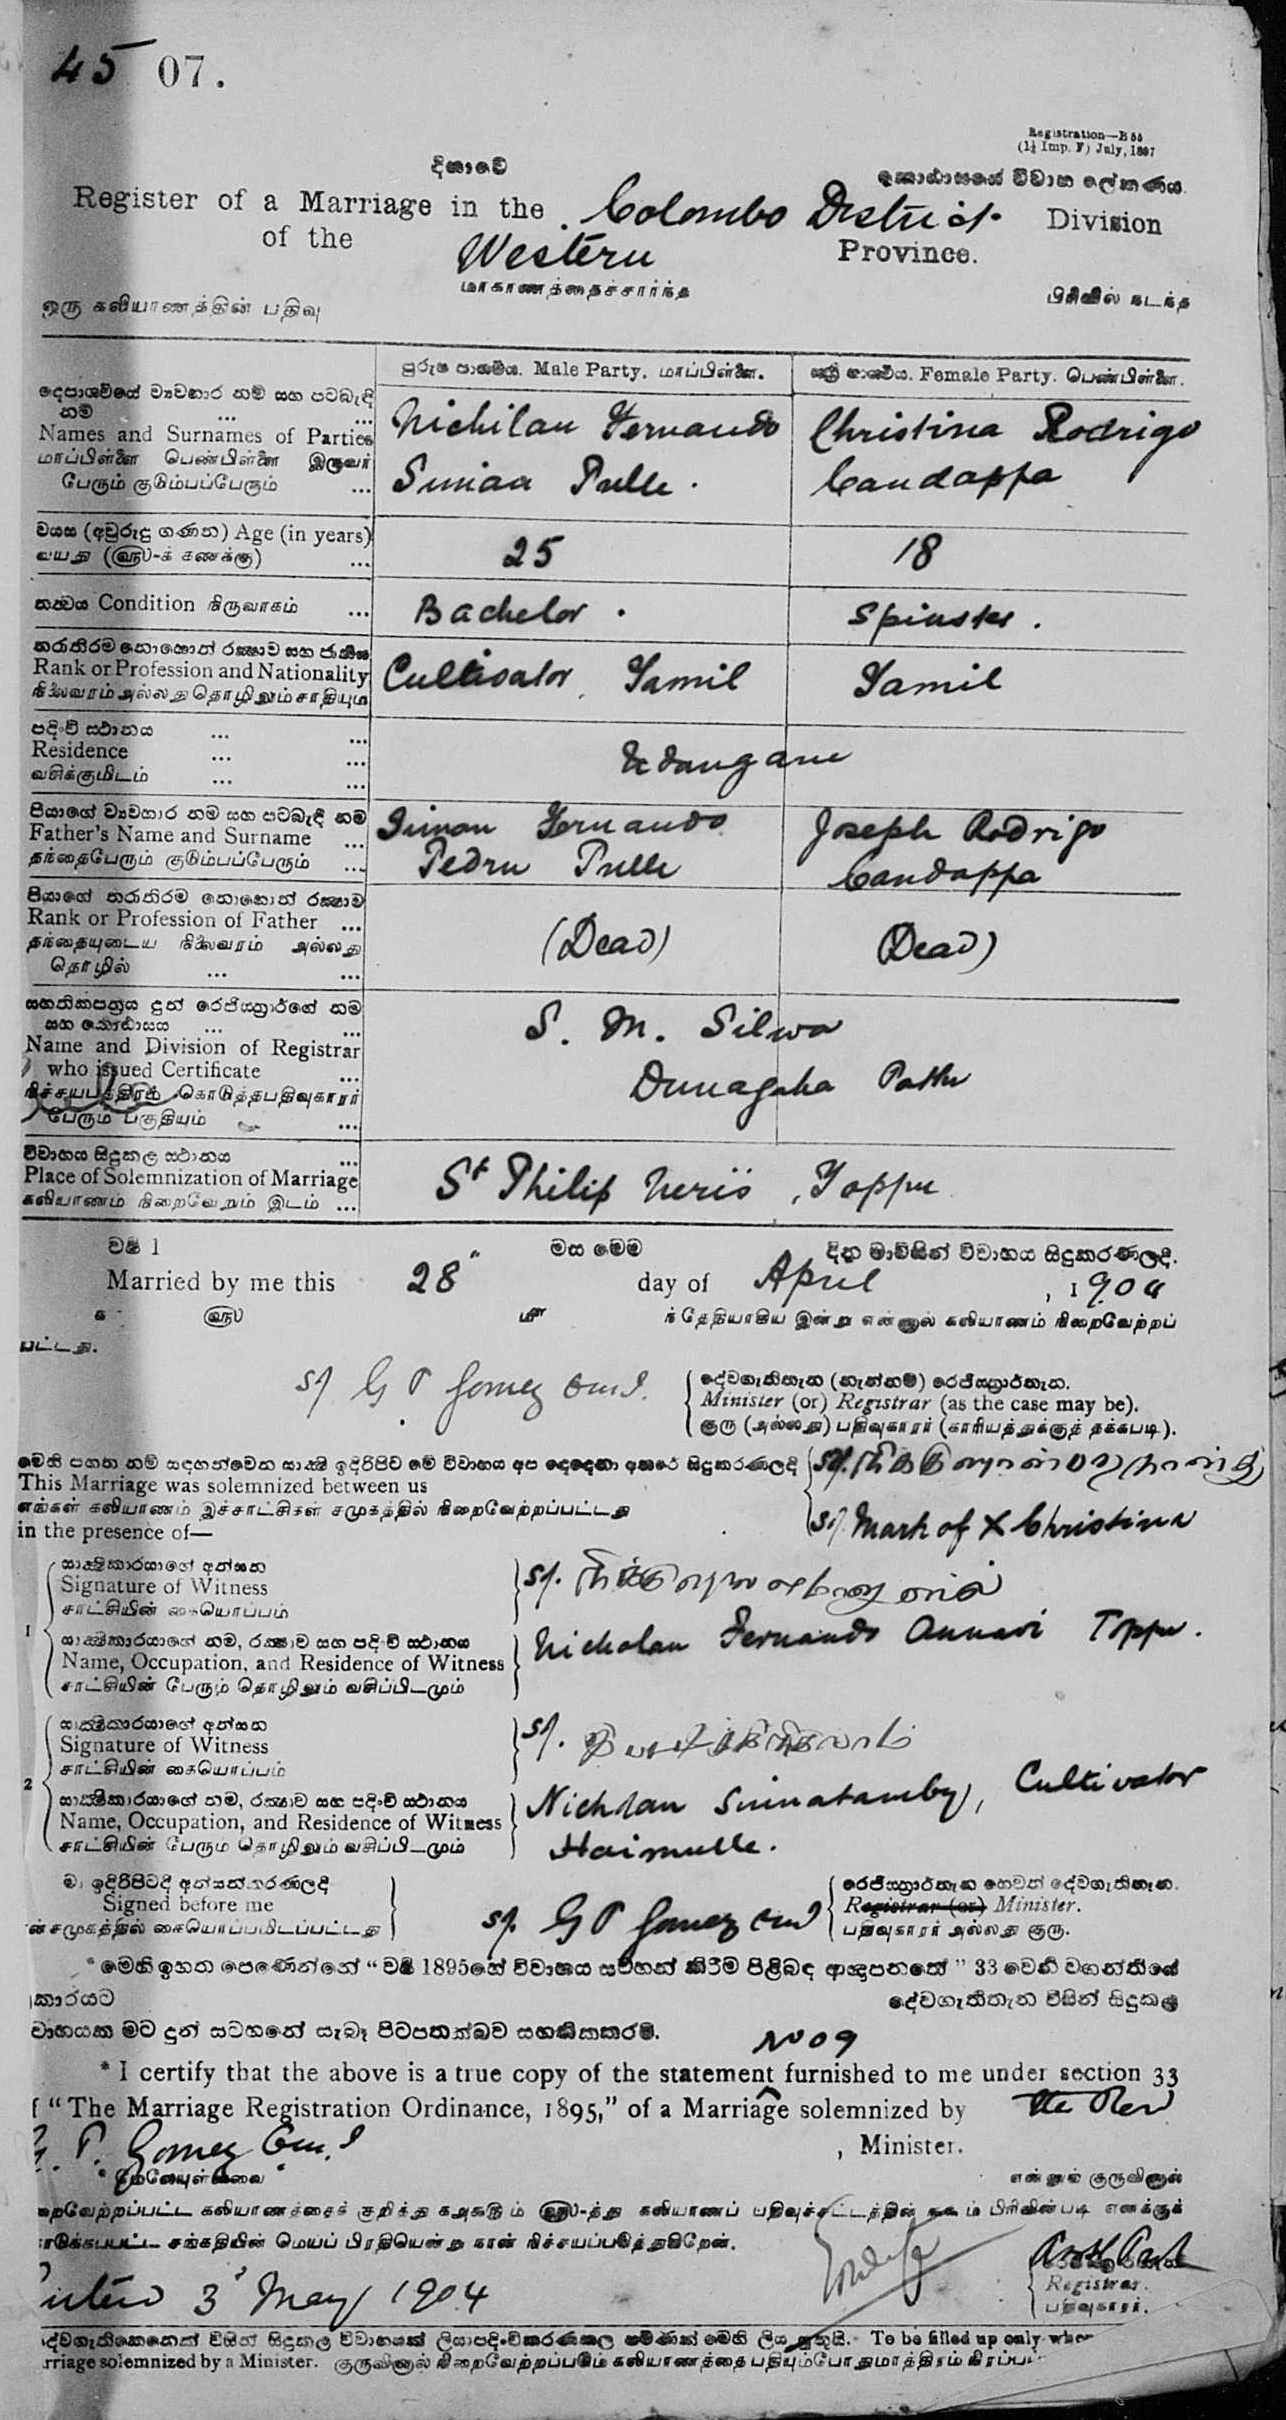 45 07.
Registration—B 55
(1½ Imp. F) July, 1897
දිසාවේ
කොඨාසයේ විවාහ ලේකණය.
Register of a Marriage in the Colombo District Division
of the Western Province.
மாகாணத்தைச்சார்ந்த
ஒரு கலியாணத்தின் பதிவு
பிரிவில் நடந்த
පුරුෂ පාශ්වීය. Male Party. மாப்பிள்ளை.
ස්ත්‍රී පාශ්වීය. Female Party. பெண்பிள்ளை.
දෙපාශවීයේ ව්‍යවහාර නම් සහ පටබැඳි
නම් ... ...
Names and Surnames of Parties
மாப்பிள்ளை பெண்பிள்ளை இருவர்
பேரும் குடும்பப்பேரும் ...
Nichilan Fernando
Simian Pulle.
Christina Rodrigo
Candappa
වයස (අවුරුදු ගණන) Age (in years)
வயது (௵-க் கணக்கு) ...
25
18
තත්වය Condition நிருவாகம் ...
Bachelor.
Spinster.
තරාතිරම නොහොත් රක්ෂාව සහ ජාතිය
Rank or Profession and Nationality
நிலைவரம் அல்லது தொழிலும் சாதியும்
Cultivator, Tamil
Tamil
පදිංචි ස්ථානය ... ...
Residence ... ...
வசிக்குமிடம் ... ...
Udangane
පියාගේ ව්‍යවහාර නම සහ පටබැඳි නම
Father's Name and Surname ...
தந்தைபேரும் குடும்பப்பேரும் ...
Simon Fernando
Pedru Pulle
Joseph Rodrigo
Candappa
පියාගේ තරාතිරම නොහොත් රක්ෂාව
Rank or Profession of Father ...
தந்தையுடைய நிலைவரம் அல்லது
தொழில் ... ...
(Dead)
(Dead)
සහතිකපත්‍රය දුන් රෙජිස්ත්‍රාර්ගේ නම
සහ කොඨාසය ... ...
Name and Division of Registrar
who issued Certificate ...
நிச்சயபத்திரங் கொடுத்தபதிவுகாரர்
பேரும் பகுதியும் ...
S. M. Silva
Dunagaha Pattu
විවාහය සිදුකල ස්ථානය ...
Place of Solemnization of Marriage
கலியாணம் நிறைவேறும் இடம் ...
St Philip Neris, Toppu
වර්ෂ 1 මස මෙම දින මාවිසින් විවාහය සිදුකරණලදි.
Married by me this 28" day of April, 1904
௵ ௴ ந் தேதியாகிய இன்று என்னால் கலியாணம் நிறைவேற்றப்
பட்டது.
S/ G P Gomez Om.I.
දේවගැතිතැන (නැත්නම්) රෙජිස්ත්‍රාර්තැන.
Minister (or) Registrar (as the case may be).
குரு (அல்லது) பதிவுகாரர் (காரியத்துக்குத் தக்கபடி).
මෙහි පහත නම් සඳහන්වෙන සාක්ෂි ඉදිරිපිට මේ විවාහය අප දෙදෙනා අතරේ සිදුකරණලදි
This Marriage was solemnized between us
எங்கள் கலியாணம் இச்சாட்சிகள் சமுகத்தில் நிறைவேற்றப்பட்டது
in the presence of—
S/. Mark of X Christina
1
සාක්ෂිකාරයාගේ අත්සන
Signature of Witness
சாட்சியின் கையொப்பம்
S/.
සාක්ෂිකාරයාගේ නම, රක්ෂාව සහ පදිංචි ස්ථානය
Name, Occupation, and Residence of Witness
சாட்சியின் பேரும் தொழிலும் வசிப்பிடமும்
Nicholan Fernando Annavi Toppu.
2
සාක්ෂිකාරයාගේ අත්සන
Signature of Witness
சாட்சியின் கையொப்பம்
S/.
සාක්ෂිකාරයාගේ නම, රක්ෂාව සහ පදිංචි ස්ථානය
Name, Occupation, and Residence of Witness
சாட்சியின் பேரும் தொழிலும் வசிப்பிடமும்
Nichlan Sinnatamby, Cultivator
Haimulle.
මා ඉදිරිපිටදී අත්සන්කරණලදි
Signed before me
ன் சமுகத்தில் கையொப்பமிடப்பட்டது
S/. G P Gomez Om I
රෙජිස්ත්‍රාර්තැන හෙවත් දේවගැතිතැන.
Registrar (or) Minister.
பதிவுகாரர் அல்லது குரு.
*මෙහි ඉහත පෙණෙන්නේ "වර්ෂ 1895නේ විවාහය සටහන් කිරීම පිළිබඳ ආඥාපනතේ" 33 වෙනි වගන්තියේ
කාරයට දේවගැතිතැන විසින් සිදුකළ
වාහයක මට දුන් සටහනේ සැබෑ පිටපතක්බව සහතිකකරමි.
No 09
* I certify that the above is a true copy of the statement furnished to me under section 33
f "The Marriage Registration Ordinance, 1895," of a Marriage solemnized by the Rev
G. P. Gomez Om.I , Minister.
* மேலேயுள்ளவை என்னும் குருவினால்
றைவேற்றப்பட்ட கலியாணத்தைக் குறித்து ௧௮௯௫ம் ௵-த்து கலியாணப் பதிவுச்சட்டத்தின் ௩௩ம் பிரிவின்படி எனக்குக்
கொடுக்கப்பட்ட சங்கதியின் மெய்ப் பிரதியென்று நான் நிச்சயப்படுத்துகிறேன்.
3 May 1904
Registrar.
பதிவுகாரர்.
දේවගැතිකෙනෙක් විසින් සිදුකල විවාහයක් ලියාපදිංචිකරණකල පමණක් මෙහි ලිය යුතුයි. To be filled up only when
rriage solemnized by a Minister. குருவினால் நிறைவேற்றப்படும் கலியாணத்தை பதியும்போதுமாத்திரம் நிரப்பப்